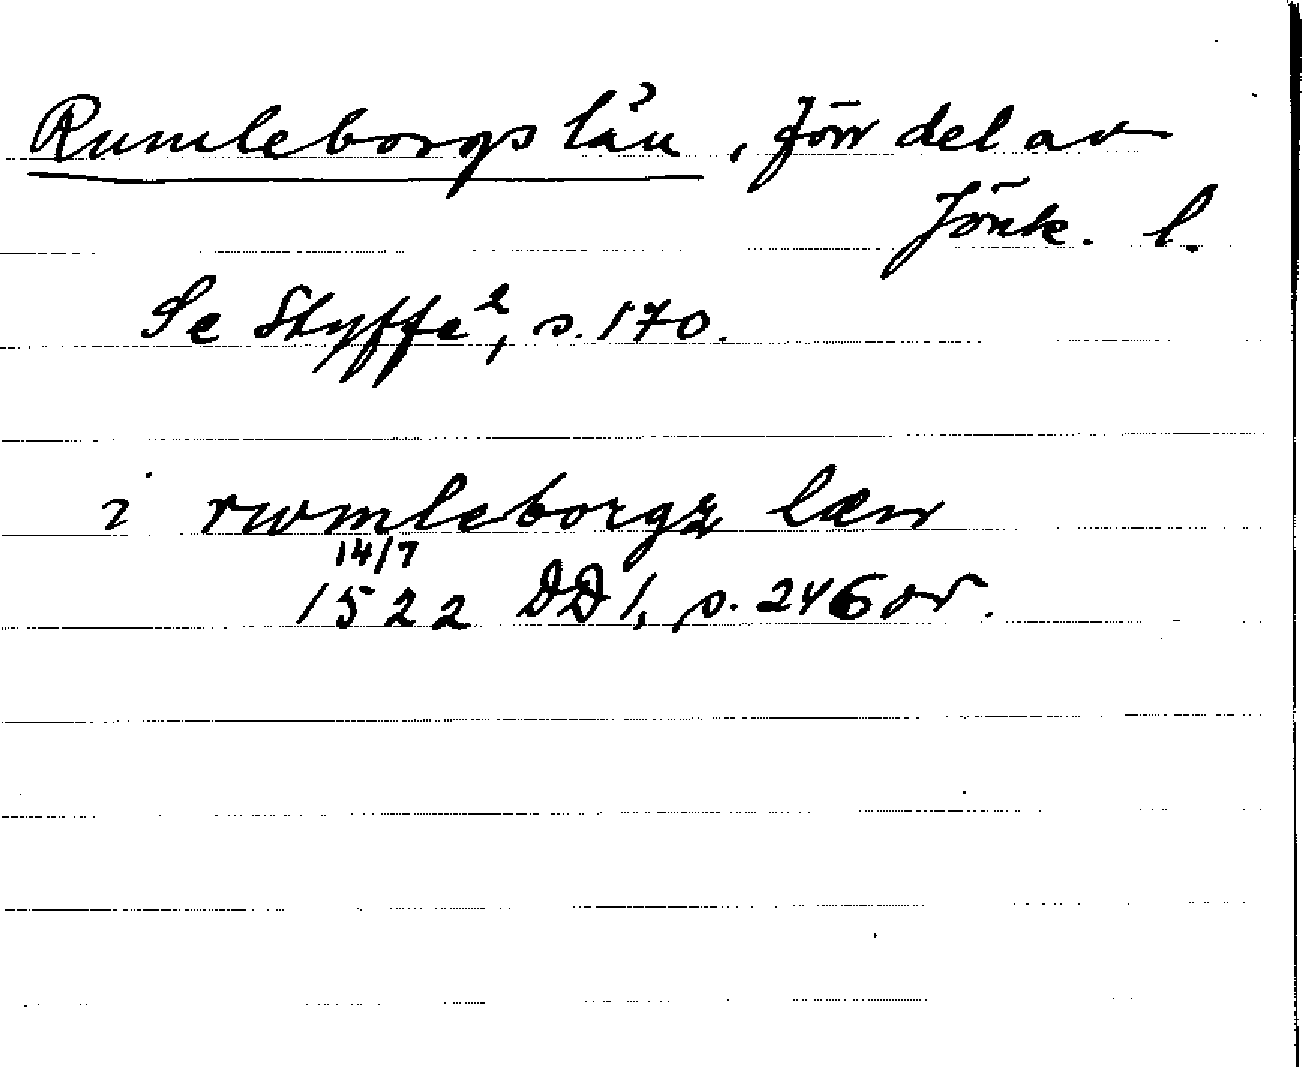 Rumleborgs län, förr del av
Jönk. l.
Se Styffe², s. 170.
i rwmleborgz læn
14/7
1522 DD 1, s. 246 or.